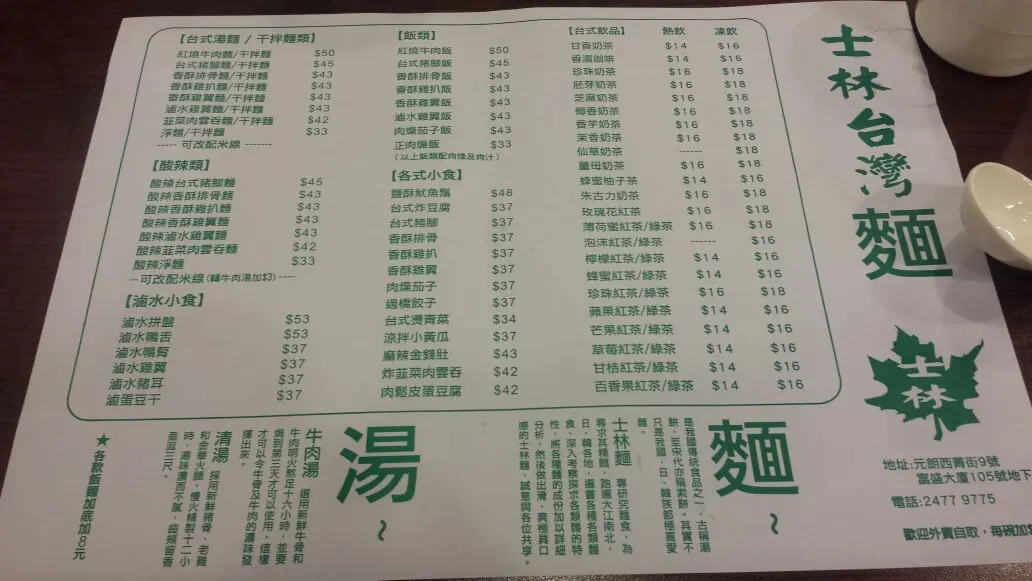 【台式湯麵 / 干拌麵類】
紅燒牛肉麵/干拌麵 $50
台式豬腳麵/干拌麵 $45
香酥排骨麵/干拌麵 $43
香酥雞扒麵/干拌麵 $43
香酥雞翼麵/干拌麵 $43
滷水雞翼麵/干拌麵 $43
韮菜肉雲吞麵/干拌麵 $42
淨麵/干拌麵 $33
----- 可改配米線 -------
【酸辣類】
酸辣台式豬腳麵 $45
酸辣香酥排骨麵 $43
酸辣香酥雞扒麵 $43
酸辣香酥雞翼麵 $43
酸辣滷水雞翼麵 $43
酸辣韮菜肉雲吞麵 $42
酸辣淨麵 $33
--可改配米線(轉牛肉湯加$3)----
【滷水小食】
滷水拼盤 $53
滷水鴨舌 $53
滷水鴨腎 $37
滷水雞翼 $37
滷水豬耳 $37
滷蛋豆干 $37
【飯類】
紅燒牛肉飯 $50
台式豬腳飯 $45
香酥排骨飯 $43
香酥雞扒飯 $43
香酥雞翼飯 $43
滷水雞翼飯 $43
肉燥茄子飯 $43
正肉燥飯 $33
(以上飯類配肉燥及肉汁)
【各式小食】
鹽酥魷魚鬚 $48
台式炸豆腐 $37
台式豬腳 $37
香酥排骨 $37
香酥雞扒 $37
香酥雞翼 $37
肉燥茄子 $37
過橋餃子 $37
台式燙青菜 $34
涼拌小黃瓜 $37
麻辣金錢肚 $43
炸韮菜肉雲吞 $42
肉鬆皮蛋豆腐 $42
【台式飲品】 熱飲 凍飲
甘香奶茶 $14 $16
香濃咖啡 $14 $16
珍珠奶茶 $16 $18
胚芽奶茶 $16 $18
芝麻奶茶 $16 $18
椰香奶茶 $16 $18
香芋奶茶 $16 $18
茉香奶茶 $16 $18
仙草奶茶 ------ $18
薑母奶茶 $16 $18
蜂蜜柚子茶 $14 $16
朱古力奶茶 $16 $18
玫瑰花紅茶 $16 $18
薄荷蜜紅茶/綠茶 $16 $18
泡沫紅茶/綠茶 ------ $16
檸檬紅茶/綠茶 $14 $16
蜂蜜紅茶/綠茶 $14 $16
珍珠紅茶/綠茶 $16 $18
蘋果紅茶/綠茶 $14 $16
芒果紅茶/綠茶 $14 $16
草莓紅茶/綠茶 $14 $16
甘桔紅茶/綠茶 $14 $16
百香果紅茶/綠茶 $14 $16
士林台灣麵
士林
地址:元朗西菁街9號
富盛大廈105號地下
電話:2477 9775
歡迎外賣自取，每碗加
麵~
是我國傳統食品之一，古稱湯
餅，至宋代亦稱索餅。其實不
只是我國，日、韓族都極喜愛
麵。
士林麵 專研究麵食，為
尋求其精髓，跑遍大江南北，
日、韓各地，遍嘗各種各類麵
食，深入考察探求各類麵的特
性，將各種麵的成份加以詳細
分析，然後做出滑、爽極具口
感的士林麵，誠意與各位共享。
湯~
牛肉湯 選用新鮮牛骨和
牛肉明火熬足十六小時，並要
焗到第三天才可以使用，這樣
才可以令牛骨及牛肉的濃味發
揮出來。
清湯 採用新鮮豬骨、老雞
和金華火腿，慢火精製十二小
時，湯味濃而不膩，齒頰留香
垂涎三尺。
★各款飯麵加底加8元